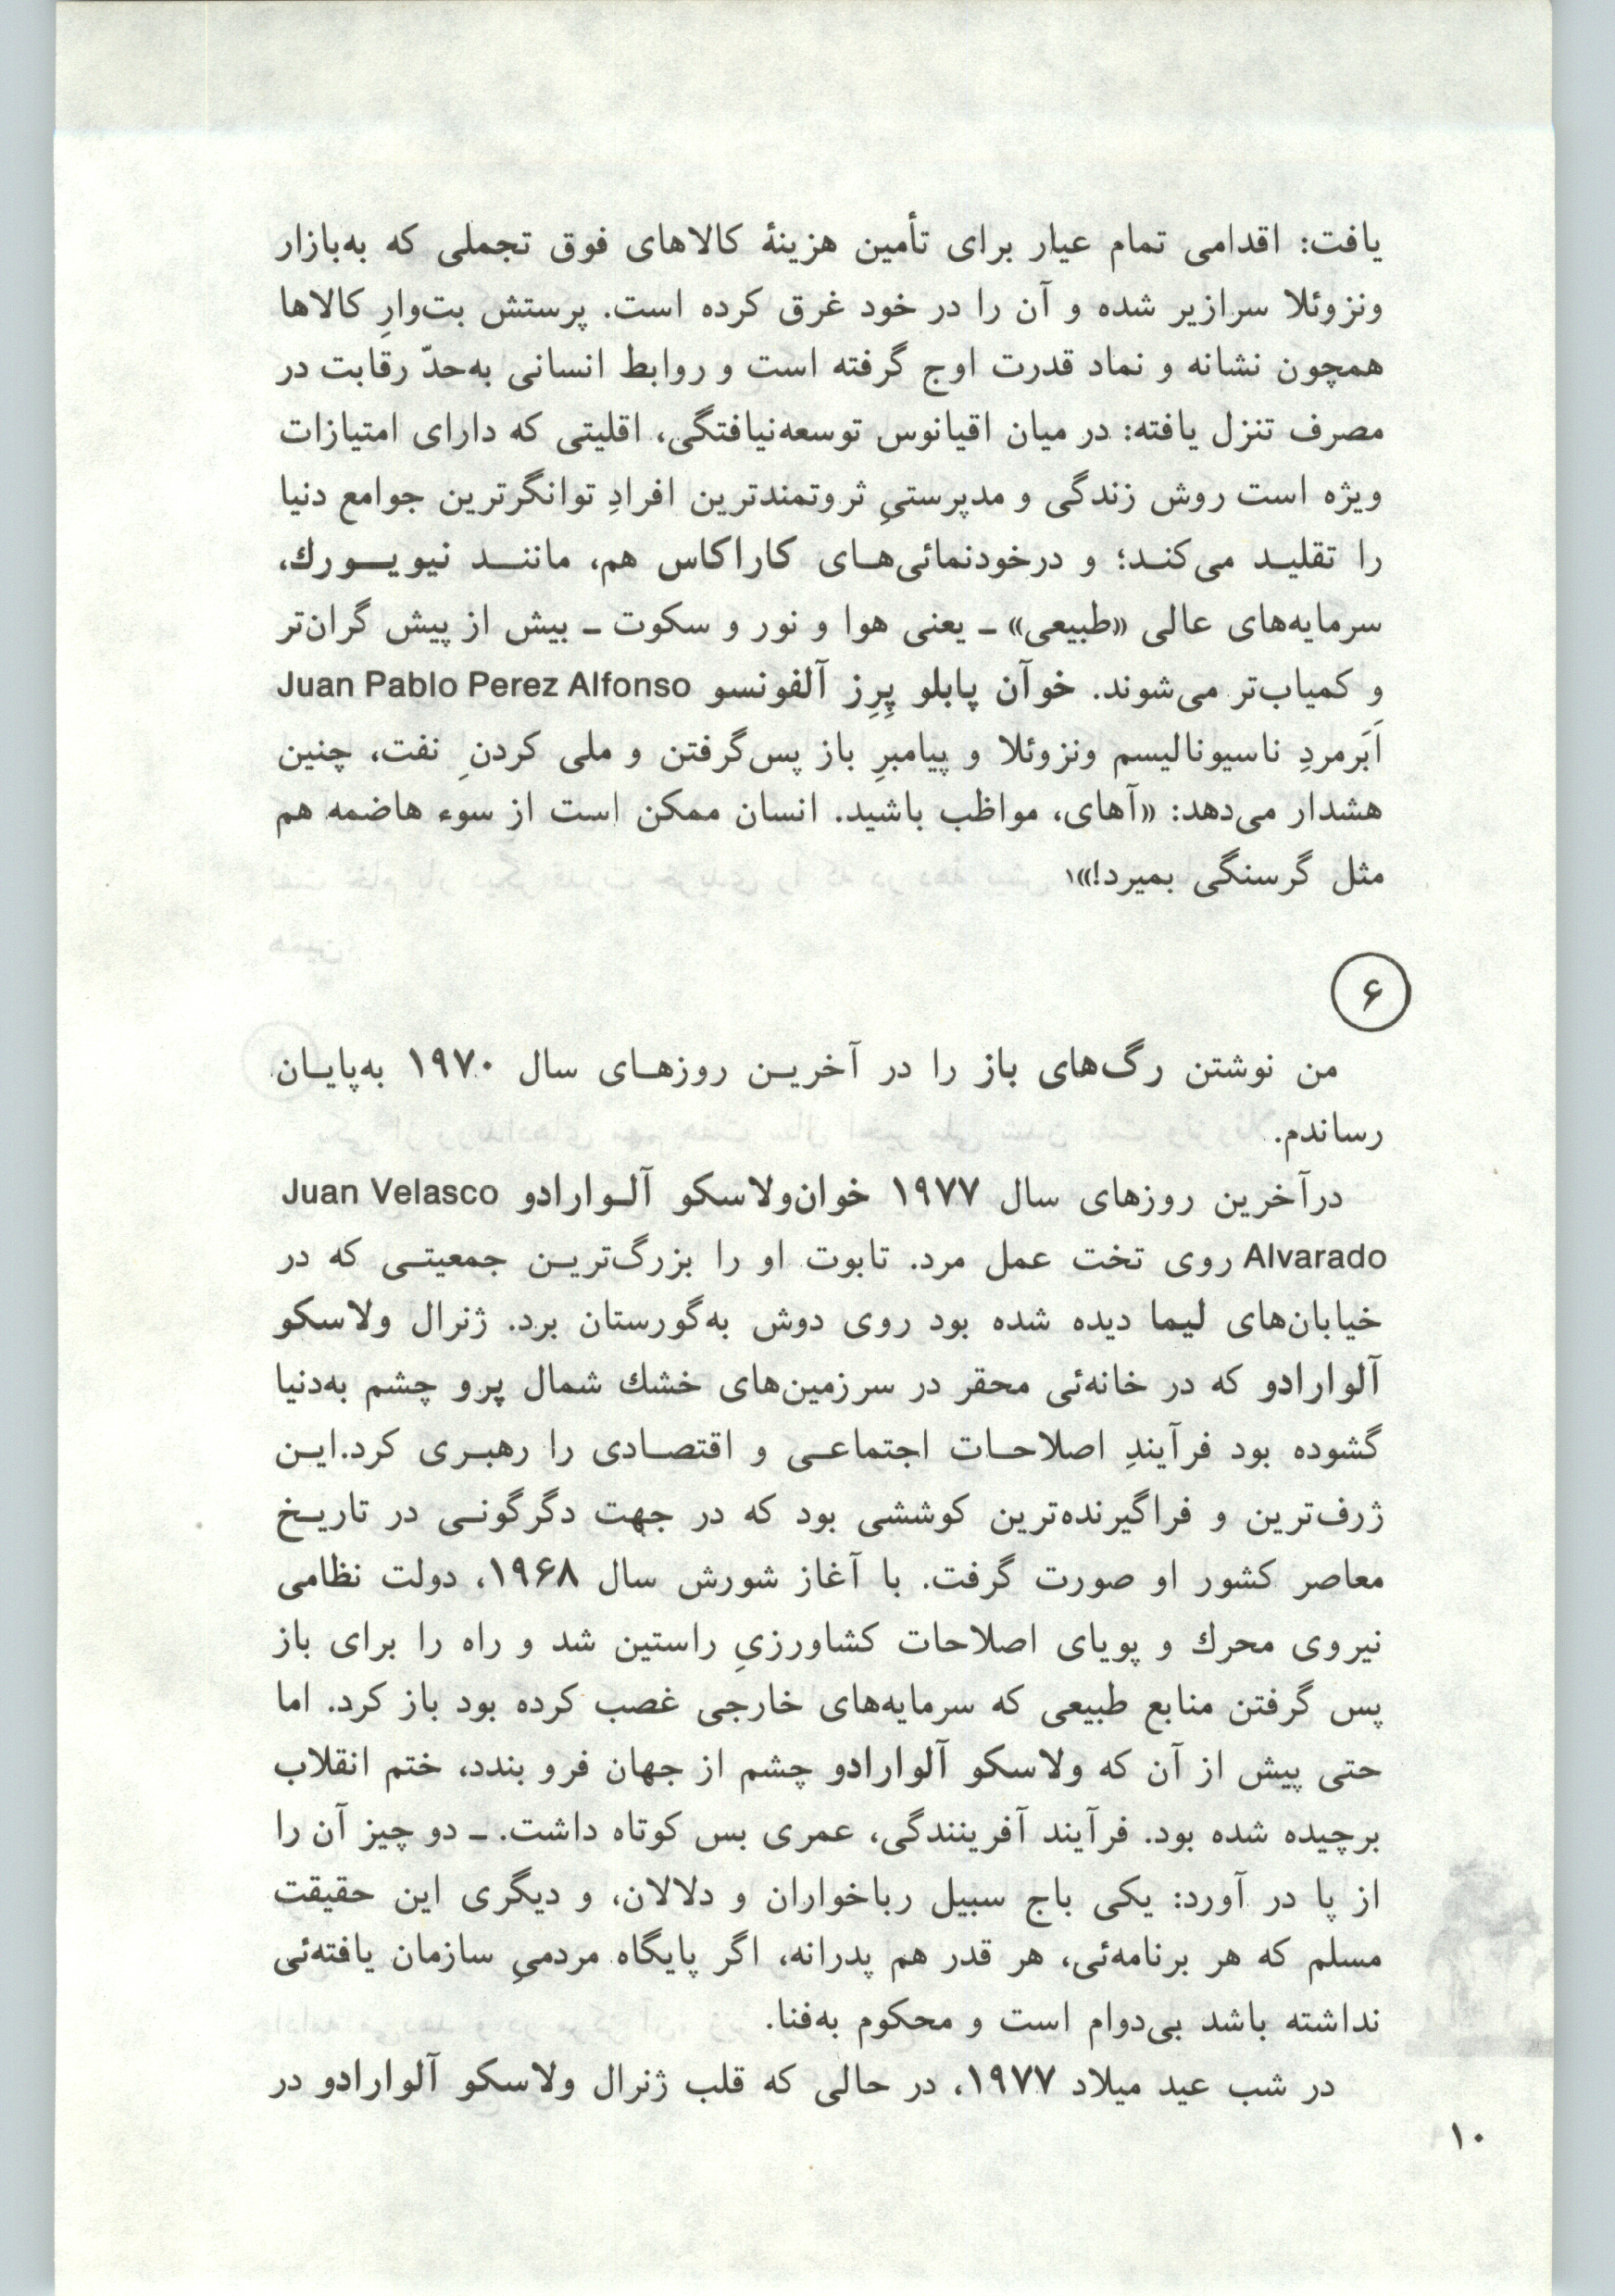 یافت: اقدامی تمام عیار برای تأمین هزینهٔ کالاهای فوق تجملی که به‌بازار
ونزوئلا سرازیر شده و آن را در خود غرق کرده است. پرستش بت‌وارِ کالاها
همچون نشانه و نماد قدرت اوج گرفته است و روابط انسانی به‌حدّ رقابت در
مصرف تنزل یافته: در میان اقیانوس توسعه‌نیافتگی، اقلیتی که دارای امتیازات
ویژه است روش زندگی و مدپرستیِ ثروتمندترین افرادِ توانگرترین جوامع دنیا
را تقلید می‌کند؛ و درخودنمائی‌های کاراکاس هم، مانند نیویورك،
سرمایه‌های عالی «طبیعی» ـ یعنی هوا و نور و سکوت ـ بیش از پیش گران‌تر
و کمیاب‌تر می‌شوند. خوآن پابلو پِرِز آلفونسو Juan Pablo Perez Alfonso
اَبَرمردِ ناسیونالیسم ونزوئلا و پیامبرِ باز پس‌گرفتن و ملی کردنِ نفت، چنین
هشدار می‌دهد: «آهای، مواظب باشید. انسان ممکن است از سوء هاضمه هم
مثل گرسنگی بمیرد!»۱
۶
من نوشتن رگ‌های باز را در آخرین روزهای سال ۱۹۷۰ به‌پایان
رساندم.
درآخرین روزهای سال ۱۹۷۷ خوان‌ولاسکو آلوارادو Juan Velasco
Alvarado روی تخت عمل مرد. تابوت او را بزرگ‌ترین جمعیتی که در
خیابان‌های لیما دیده شده بود روی دوش به‌گورستان برد. ژنرال ولاسکو
آلوارادو که در خانه‌ئی محقر در سرزمین‌های خشك شمال پرو چشم به‌دنیا
گشوده بود فرآیندِ اصلاحات اجتماعی و اقتصادی را رهبری کرد.این
ژرف‌ترین و فراگیرنده‌ترین کوششی بود که در جهت دگرگونی در تاریخ
معاصر کشور او صورت گرفت. با آغاز شورش سال ۱۹۶۸، دولت نظامی
نیروی محرك و پویای اصلاحات کشاورزیِ راستین شد و راه را برای باز
پس گرفتن منابع طبیعی که سرمایه‌های خارجی غصب کرده بود باز کرد. اما
حتی پیش از آن که ولاسکو آلوارادو چشم از جهان فرو بندد، ختم انقلاب
برچیده شده بود. فرآیند آفرینندگی، عمری بس کوتاه داشت. ـ دو چیز آن را
از پا در آورد: یکی باج سبیل رباخواران و دلالان، و دیگری این حقیقت
مسلم که هر برنامه‌ئی، هر قدر هم پدرانه، اگر پایگاه مردمیِ سازمان یافته‌ئی
نداشته باشد بی‌دوام است و محکوم به‌فنا.
در شب عید میلاد ۱۹۷۷، در حالی که قلب ژنرال ولاسکو آلوارادو در
۱۰